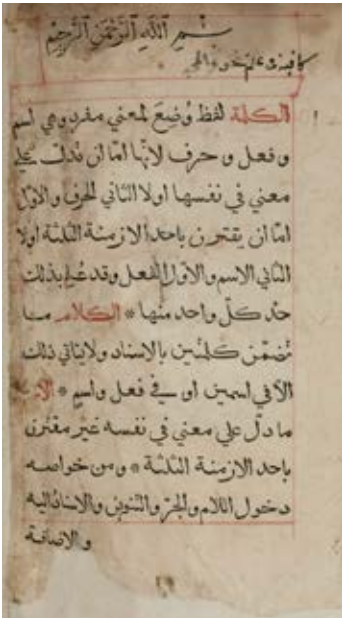 بسم الله الرحمن الرحيم
كافية في علم نحو
الكلمة لفظ وُضِعَ لمعني مفرد وهي اسم
و فعل و حرف لانها امّا ان تدلّ علي
معني في نفسها اولا الثاني الحرف والاوّل
امّا ان يقترن باحد الازمنة الثلثة اولا
الثاني الاسم والاوّل الفعل وقد عُلِم بذلك
حدّ كلّ واحد منها * الكلام ما
تضمّن كلمتين بالاسناد ولا يتاتي ذلك
الّا في اسمين او في فعل واسمٍ * الاسم
ما دلّ علي معني في نفسه غير مقترن
باحد الازمنة الثلثة * ومن خواصه
دخول اللام والجرّ والتنوين والاسناد اليه
والاضافة